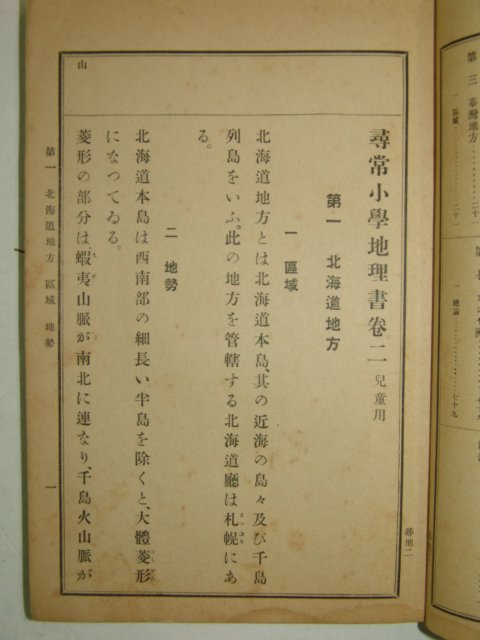 尋常小學地理書卷二 兒童用
第一 北海道地方
一 區域
北海道地方とは北海道本島、其の近海の島々及び千島
列島をいふ。此の地方を管轄する北海道廳は札幌にあ
る。
二 地勢
北海道本島は西南部の細長い半島を除くと、大體菱形
になつてゐる。
菱形の部分は、蝦夷山脈が南北に連なり、千島火山脈が
山
尋地二
第一 北海道地方 區域 地勢
一
第三 臺灣地方
一 區域
一 總論
七十九